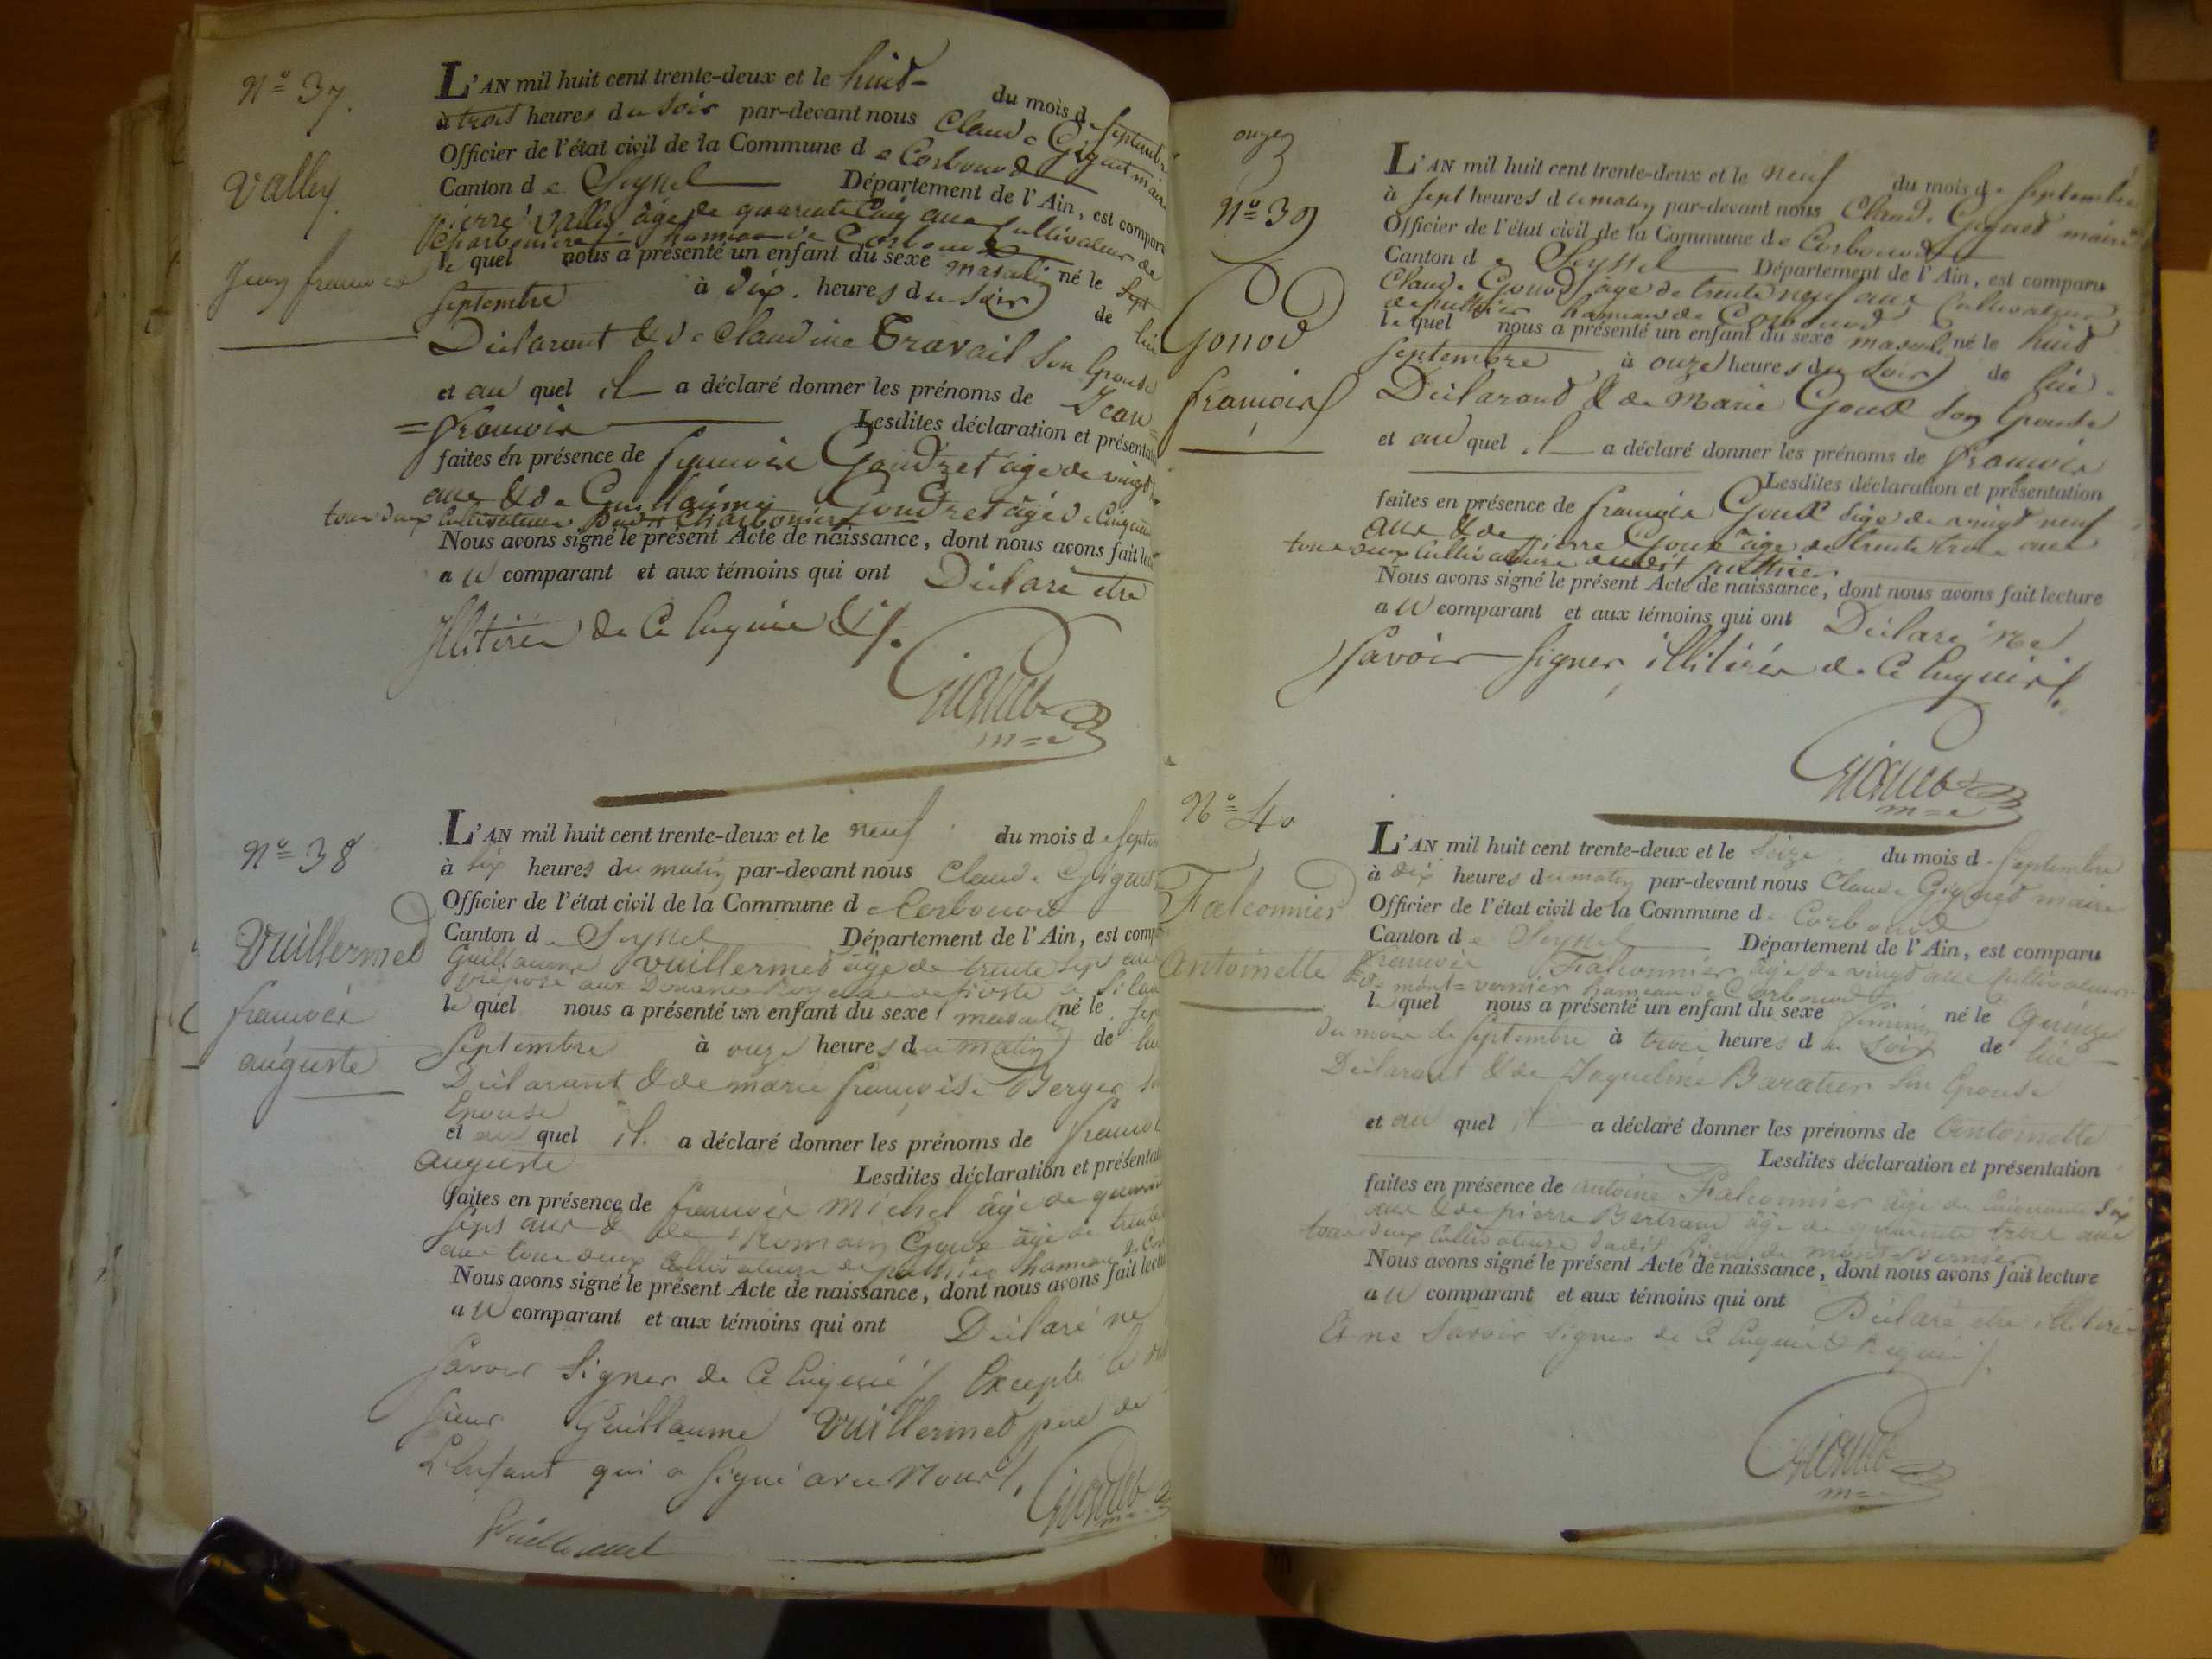 N° 37.
Vallet
Jean françois
L'AN mil huit cent trente-deux et le huit du mois de septembre
à trois heures du soir par-devant nous Claude Giguet maire
Officier de l'état civil de la Commune de Corbonod
Canton de Seyssel Département de l'Ain, est comparu
pierre Vallet âgé de quarante Cinq ans Cultivateur de
Charbonière hameau de Corbonod
le quel nous a présenté un enfant du sexe masculin né le sept
septembre à dix heures du soir de lui
Déclarant & de Claudine Travail son Epouse
et au quel il a déclaré donner les prénoms de Jean
= françois Lesdites déclaration et présentation
faites en présence de françois Goudret âgé de vingt
ans & de Guillaume Goudret âgé de Cinquante
tous deux Cultivateurs dudit Charbonière
Nous avons signé le présent Acte de naissance, dont nous avons fait lecture
au comparant et aux témoins qui ont Déclaré etre
illitérés de ce Enquis &.
Giguet
m=e
N° 38
Vuillermet
françois
auguste
L'AN mil huit cent trente-deux et le neuf du mois de septem
à six heures du matin par-devant nous Claude Giguet
Officier de l'état civil de la Commune de Corbonod
Canton de Seyssel Département de l'Ain, est comp
Guillaume Vuillermet âgé de trente sept ans
préposé aux Douanes Royales de
le quel nous a présenté un enfant du sexe masculin né le sept
septembre à onze heures du matin de lui
Déclarant & de marie françoise Berger
Epouse
et au quel il a déclaré donner les prénoms de françois
auguste Lesdites déclaration et présentation
faites en présence de françois Michel âgé de quarante
sept ans & de Romain Goux âgé de trente
ans tous deux Cultivateurs de puthier hameau de Cor
Nous avons signé le présent Acte de naissance, dont nous avons fait lecture
au comparant et aux témoins qui ont Déclaré ne
savoir signer de ce Enquis Excepté le
sieur Guillaume Vuillermet père de
L'Enfant qui a signé avec Nous.
Giguet
m=e
Vuillermet
onze
N° 39
Gonod
françois
L'AN mil huit cent trente-deux et le neuf du mois de septembre
à sept heures du matin par-devant nous Claude Giguet maire
Officier de l'état civil de la Commune de Corbonod
Canton de Seyssel Département de l'Ain, est comparu
Claude Gonod âgé de trente neuf ans Cultivateur
de puthier hameau de Corbonod
le quel nous a présenté un enfant du sexe masculin né le huit
septembre à onze heures du soir de lui
Déclarant & de Marie Goux son Epouse
et au quel il a déclaré donner les prénoms de françois
Lesdites déclaration et présentation
faites en présence de françois Goux âgé de vingt neuf
ans & de pierre Goux âgé de trente trois ans
tous deux Cultivateurs dudit puthier
Nous avons signé le présent Acte de naissance, dont nous avons fait lecture
au comparant et aux témoins qui ont Déclaré ne
savoir signer, illitérés de ce Enquis.
Giguet
m=e
N° 40
Falconnier
Antoinette
L'AN mil huit cent trente-deux et le seize du mois de septembre
à dix heures du matin par-devant nous Claude Giguet maire
Officier de l'état civil de la Commune de Corbonod
Canton de Seyssel Département de l'Ain, est comparu
françois Falconnier âgé de vingt ans cultivateur
de mont=vernier hameau de Corbonod
le quel nous a présenté un enfant du sexe féminin né le quinze
du mois de septembre à trois heures du soir de lui
Déclarant & de Jaqueline Baratier son Epouse
et au quel il a déclaré donner les prénoms de Antoinette
Lesdites déclaration et présentation
faites en présence de antoine Falconnier âgé de Cinquante six
ans & de pierre Bertrand âgé de quarante trois ans
tous deux Cultivateurs dudit lieu de mont vernier
Nous avons signé le présent Acte de naissance, dont nous avons fait lecture
au comparant et aux témoins qui ont Déclaré etre illitérés
Et ne savoir signer de ce Enquis & Requis.
Giguet
m=e